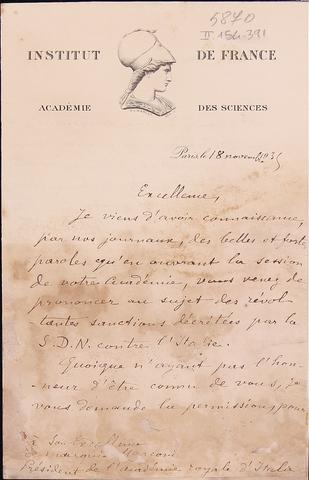 5870
II 154-391
INSTITUT DE FRANCE
ACADÉMIE DES SCIENCES
Paris le 18 novembre 1935
Excellence,
Je viens d'avoir connaissance,
par nos journaux, des belles et fortes
paroles qu'en ouvrant la session
de votre Académie, vous venez de
prononcer au sujet des révol-
tantes sanctions décrétées par la
S.D.N. contre l'Italie.
Quoique n'ayant pas l'hon-
neur d'être connu de vous, je
vous demande la permission, pour
à Son Excellence
le marquis Marconi
Président de l'académie royale d'Italie